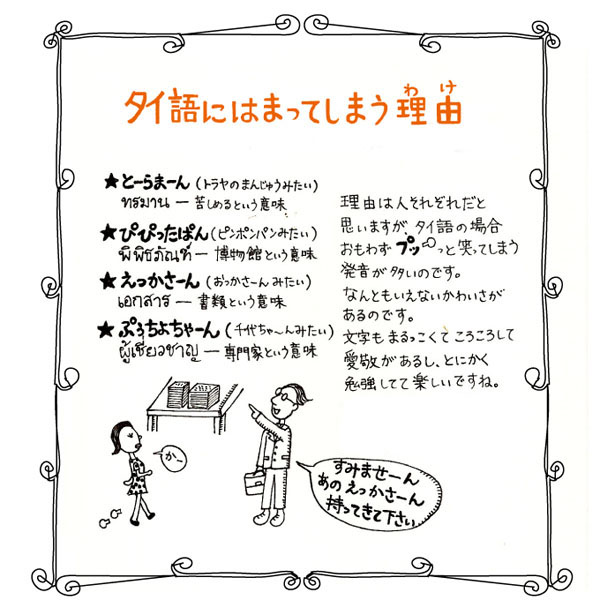 タイ語にはまってしまう理由
わけ
★とーらまーん (トラヤのまんじゅうみたい)
ทรมาน — 苦しめるという意味
★ぴぴったぱん (ピンポンパンみたい)
พิพิธภัณฑ์ — 博物館という意味
★えっかさーん (おっかさーんみたい)
เอกสาร — 書類という意味
★ぷぅちよちゃーん (千代ちゃ〜んみたい)
ผู้เชี่ยวชาญ — 専門家という意味
理由は人それぞれだと
思いますが、タイ語の場合
おもわずプッっと笑ってしまう
発音が多いのです。
なんともいえないかわいさが
あるのです。
文字もまるっこくてころころして
愛敬があるし、とにかく
勉強してて楽しいですね。
か…
すみませーん
あのえっかさーん
持ってきて下さい